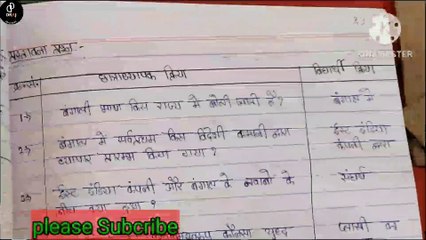 प्रस्तावना प्रश्न :-
क्र०सं० छात्राध्यापक क्रिया विद्यार्थी क्रिया
1→ बंगाली भाषा किस राज्य में बोली जाती है? बंगाल में
2→ बंगाल में सर्वप्रथम किस विदेशी कम्पनी द्वारा ईस्ट इंडिया
व्यापार प्रारम्भ किया गया? कंपनी द्वारा
3→ ईस्ट इंडिया कंपनी और बंगाल के नवाबों के संघर्ष
बीच क्या हुआ?
कौनसा युद्ध प्लासी का
please Subcribe